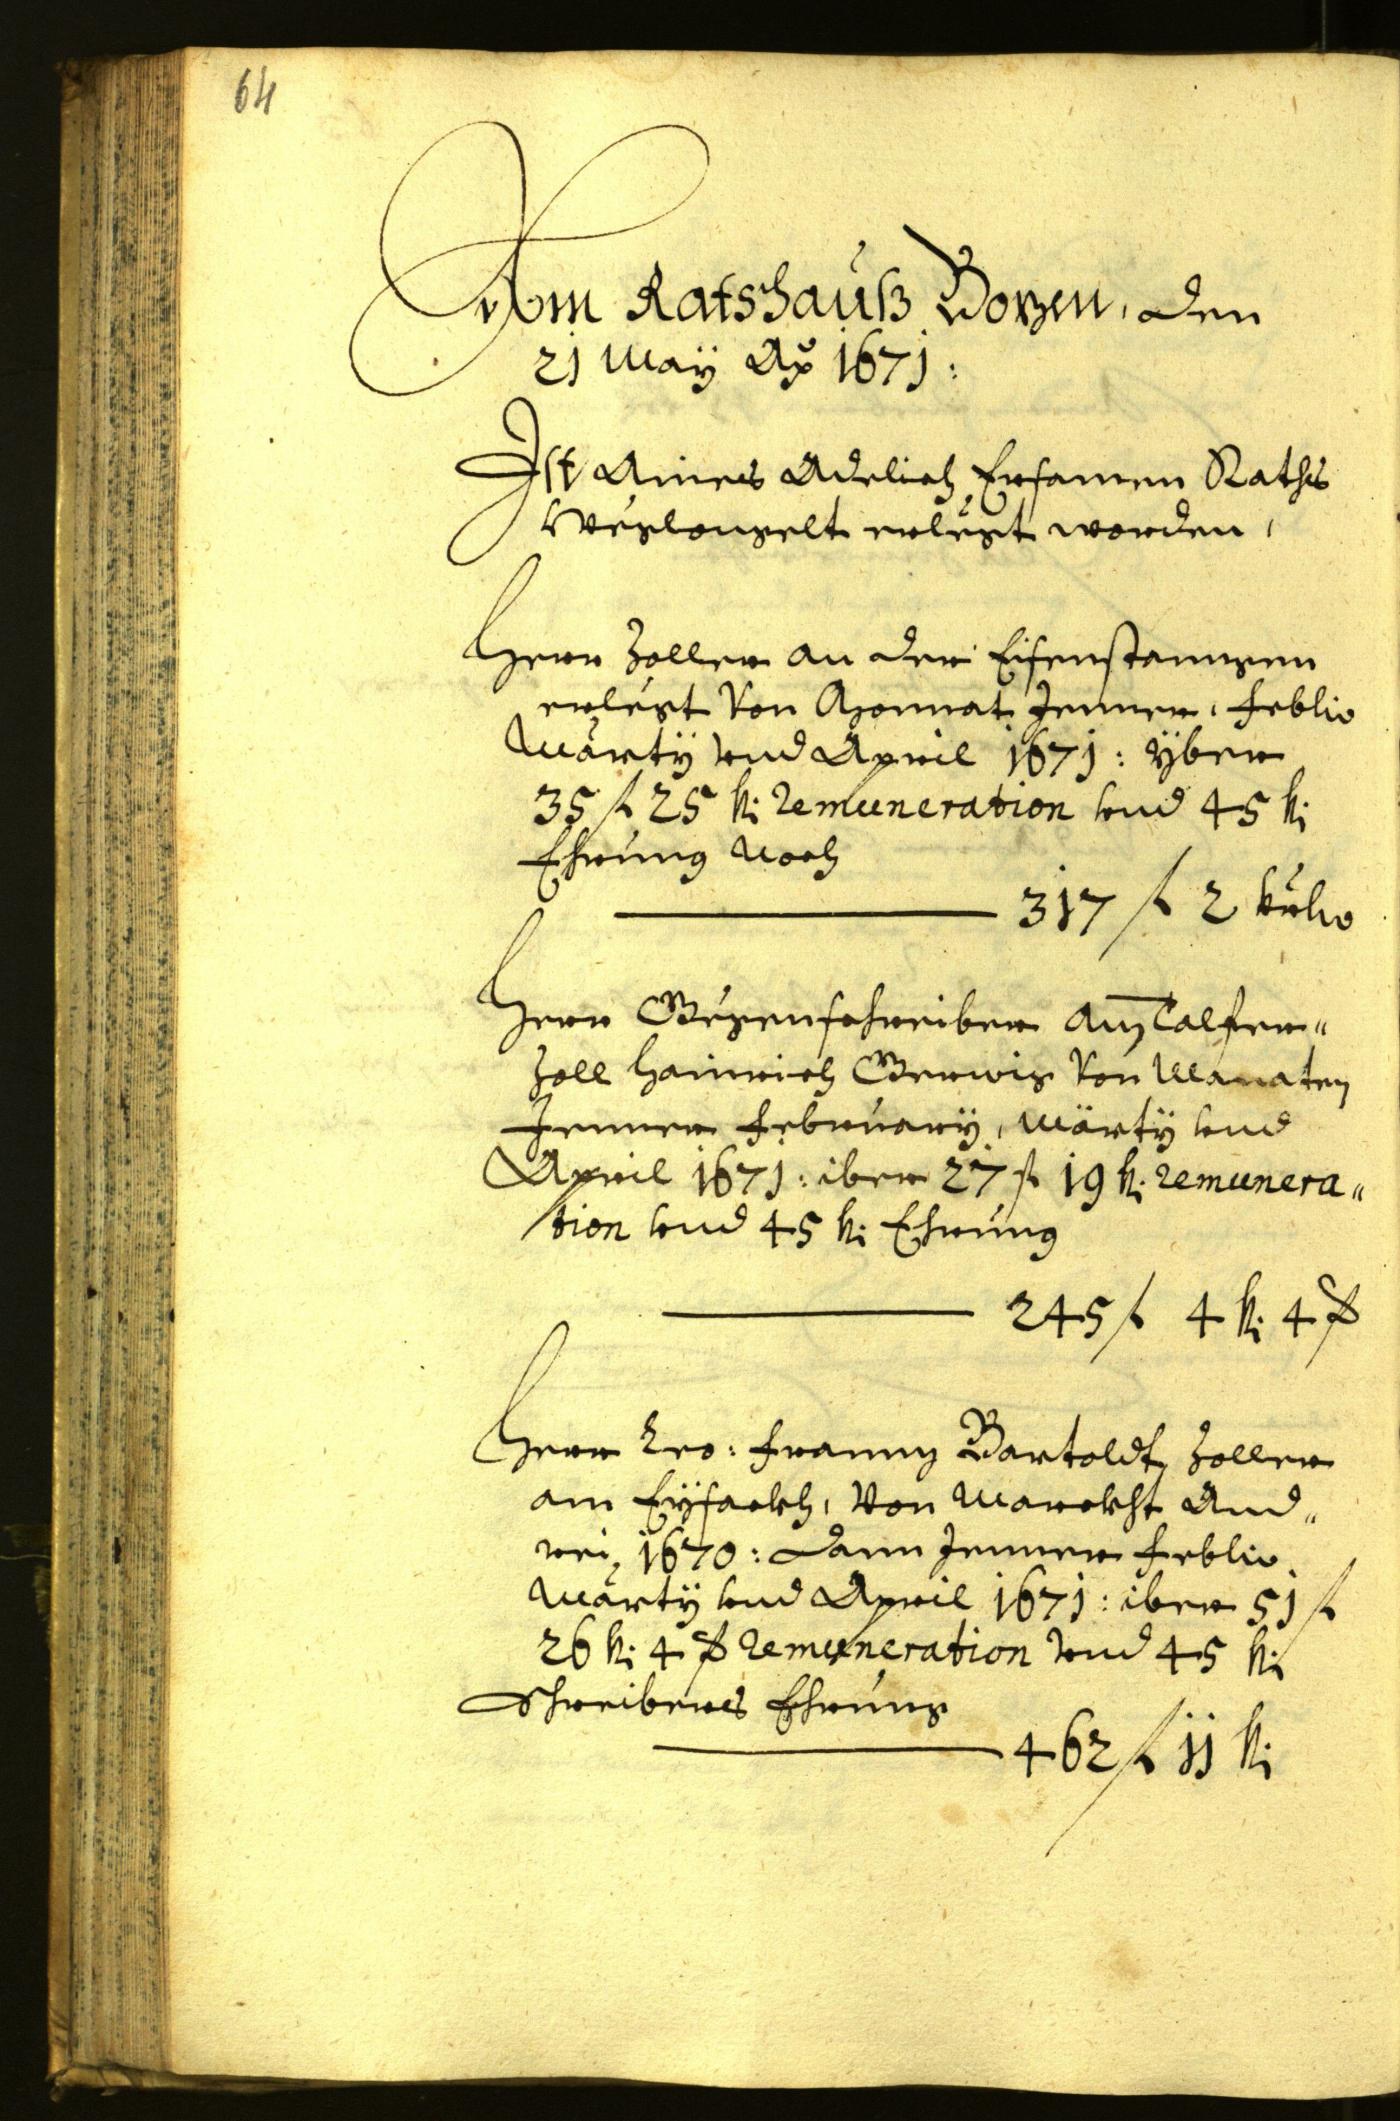 64
Am Ratshauß Bozen, den
21 May Ao 1671:
Ist Aines Adelich Ersamen Raths
Weglongelt erlegt worden,
Herr Zoller an der Eisenstanngen
erlegt von Monnat Jenner, Feblio
Martÿ vnd April 1671: yber
35 fl 25 kr remuneration vnd 45 kr
Ehrung noch
317 fl 2 
Herr Gegenschreiber am Talfer"
Zoll Hainrich Gerwig von Monaten
Jenner Februarÿ, Märtÿ vnd
April 1671: iber 27 fl 19 kr remunera"
tion vnd 45 kr Ehrung
245 fl 4 kr 4 ₰
Herr Leo: Frannz Bartoldt, Zoller
am Eÿsackh, von Marckht And"
rei, 1670: dann Jenner Feblio
Martÿ vnd April 1671: iber 51 fl
26 kr 4 ₰ remuneration vnd 45 kr
Schreibers Ehrung
462 fl 11 kr